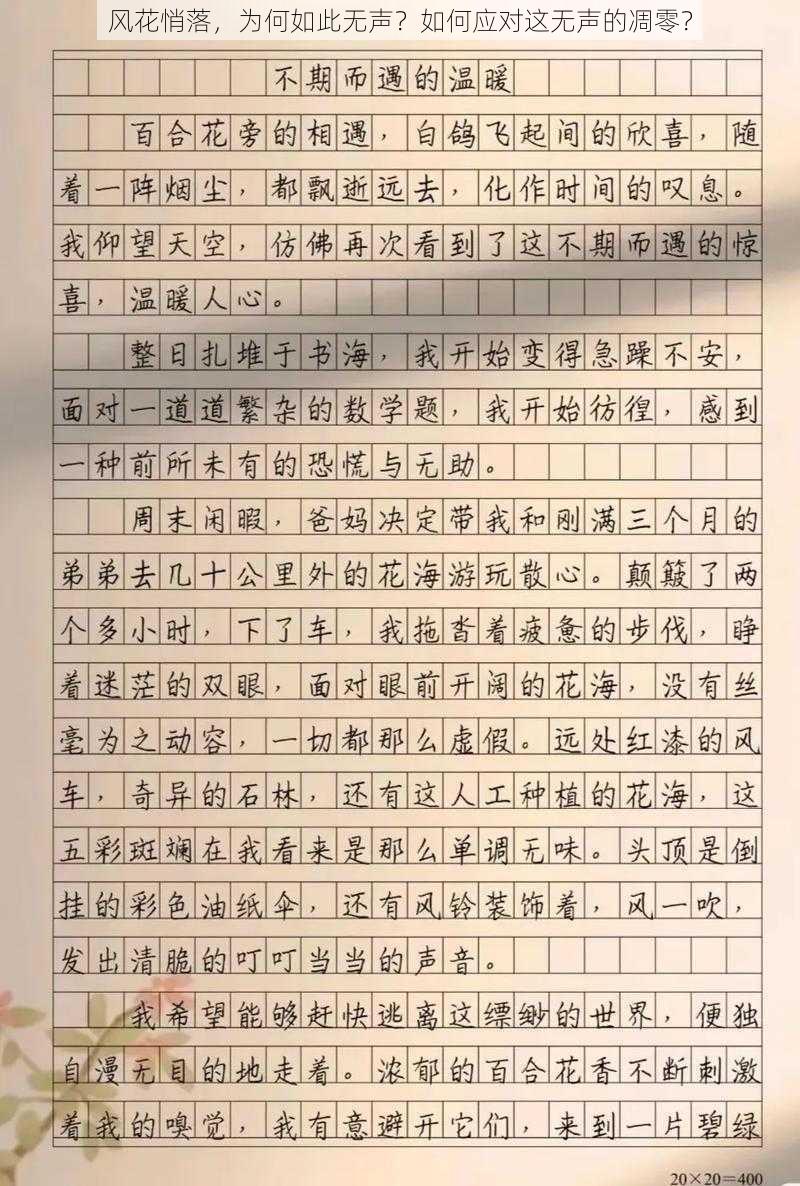 风花悄落，为何如此无声？如何应对这无声的凋零？
不期而遇的温暖
百合花旁的相遇，白鸽飞起间的欣喜，随
着一阵烟尘，都飘逝远去，化作时间的叹息。
我仰望天空，仿佛再次看到了这不期而遇的惊
喜，温暖人心。
整日扎堆于书海，我开始变得急躁不安，
面对一道道繁杂的数学题，我开始彷徨，感到
一种前所未有的恐慌与无助。
周末闲暇，爸妈决定带我和刚满三个月的
弟弟去几十公里外的花海游玩散心。颠簸了两
个多小时，下了车，我拖沓着疲惫的步伐，睁
着迷茫的双眼，面对眼前开阔的花海，没有丝
毫为之动容，一切都那么虚假。远处红漆的风
车，奇异的石林，还有这人工种植的花海，这
五彩斑斓在我看来是那么单调无味。头顶是倒
挂的彩色油纸伞，还有风铃装饰着，风一吹，
发出清脆的叮叮当当的声音。
我希望能够赶快逃离这缥缈的世界，便独
自漫无目的地走着。浓郁的百合花香不断刺激
着我的嗅觉，我有意避开它们，来到一片碧绿
20×20=400